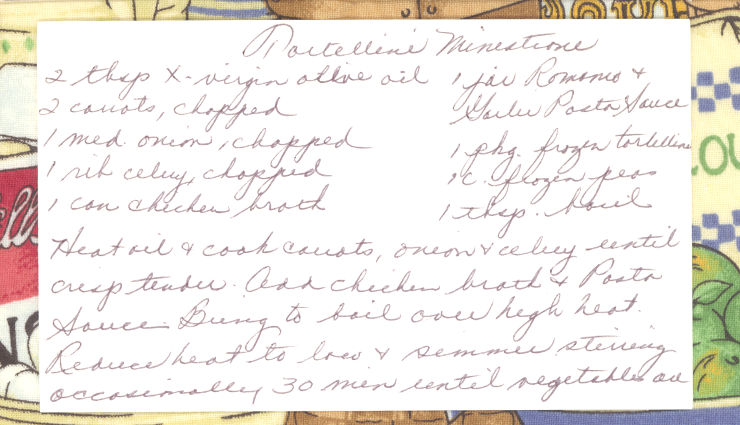 Tortellini Minestrone
2 tbsp X-virgin olive oil
2 carrots, chopped
1 med. onion, chopped
1 rib celery, chopped
1 can chicken broth
1 jar Romano &
Garlic Pasta Sauce
1 pkg. frozen tortellini
1 c. frozen peas
1 tbsp. basil
Heat oil & cook carrots, onion & celery until
crisp tender. Add chicken broth & Pasta
Sauce. Bring to boil over high heat.
Reduce heat to low & simmer stirring
occasionally, 30 min until vegetables are